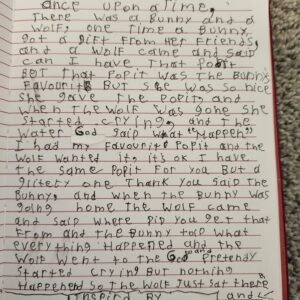 once upon a time,
There was a Bunny and a
Wolf, one time a Bunny
got a gift From Her Friends,
and a Wolf came and said
can I have that Popit
BUT that POPIT was the Bunnys
Favourite BUT she was so nice
she gave the Popit, and
when the WOLF was gone she
started crying, and the
water God said what "Happen"
I had my Favourite Popit and the
WOLF wanted it, it's ok I have
the same Popit for you BUT a
glitery one Thank you said The
Bunny, and when the BUNNY was
going home The Wolf came
and said where DID you get that
From and the Bunny told what
everything Happened and the
Wolf Went to the God Pretendy
started crying But nothing
Happened so The Wolf Just sat there
Inspired By